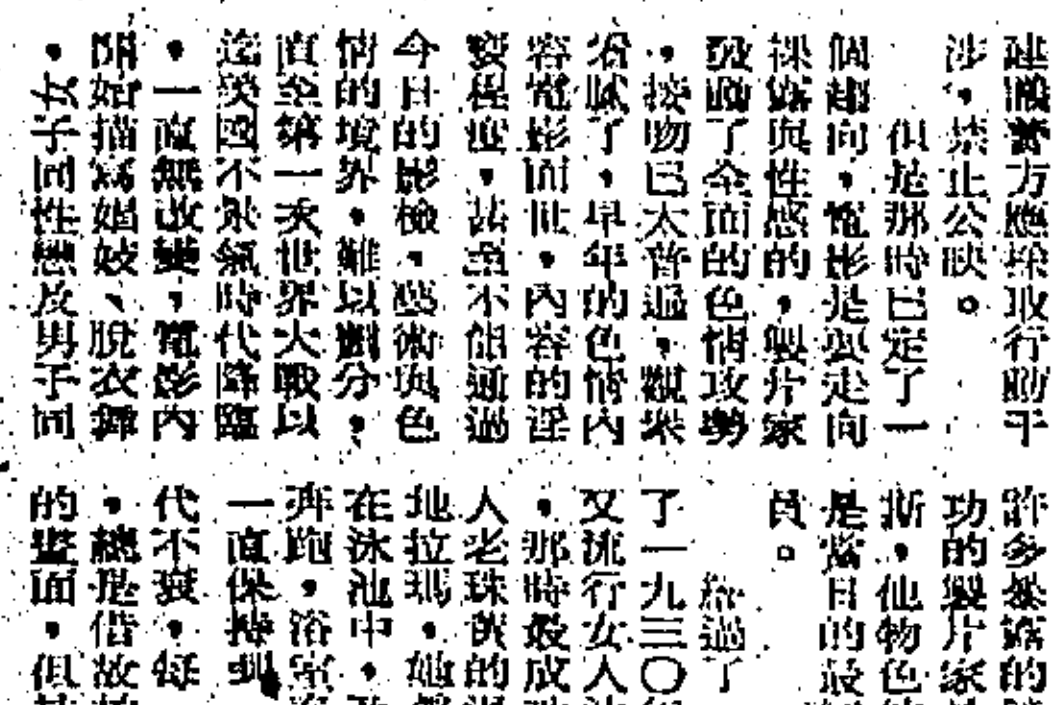 建議警方應採取行動干
涉，禁止公映。
但是那時已定了一
個趨向，電影是要走向
裸露與性感的，製片家
發動了全面的色情攻勢
，接吻已太普遍，觀眾
看膩了，早年的色情內
容電影面世，內容的淫
褻程度，甚至不能通過
今日的影檢，藝術與色
情的境界，難以劃分，
直至第一次世界大戰以
迄英國不景氣時代降臨
，一直無改變，電影內
開始描寫娼妓、脫衣舞
，女子同性戀及男子同
許多暴露的
功的製片家
斯，他物色
是當日的最
員。
經過了
了一九三〇
又流行女人
，那時最成
人老珠黃的
地拉瑪，她
在泳池中，
奔跑，浴室
一直保持到
代不衰，每
，總是借故
的畫面，但